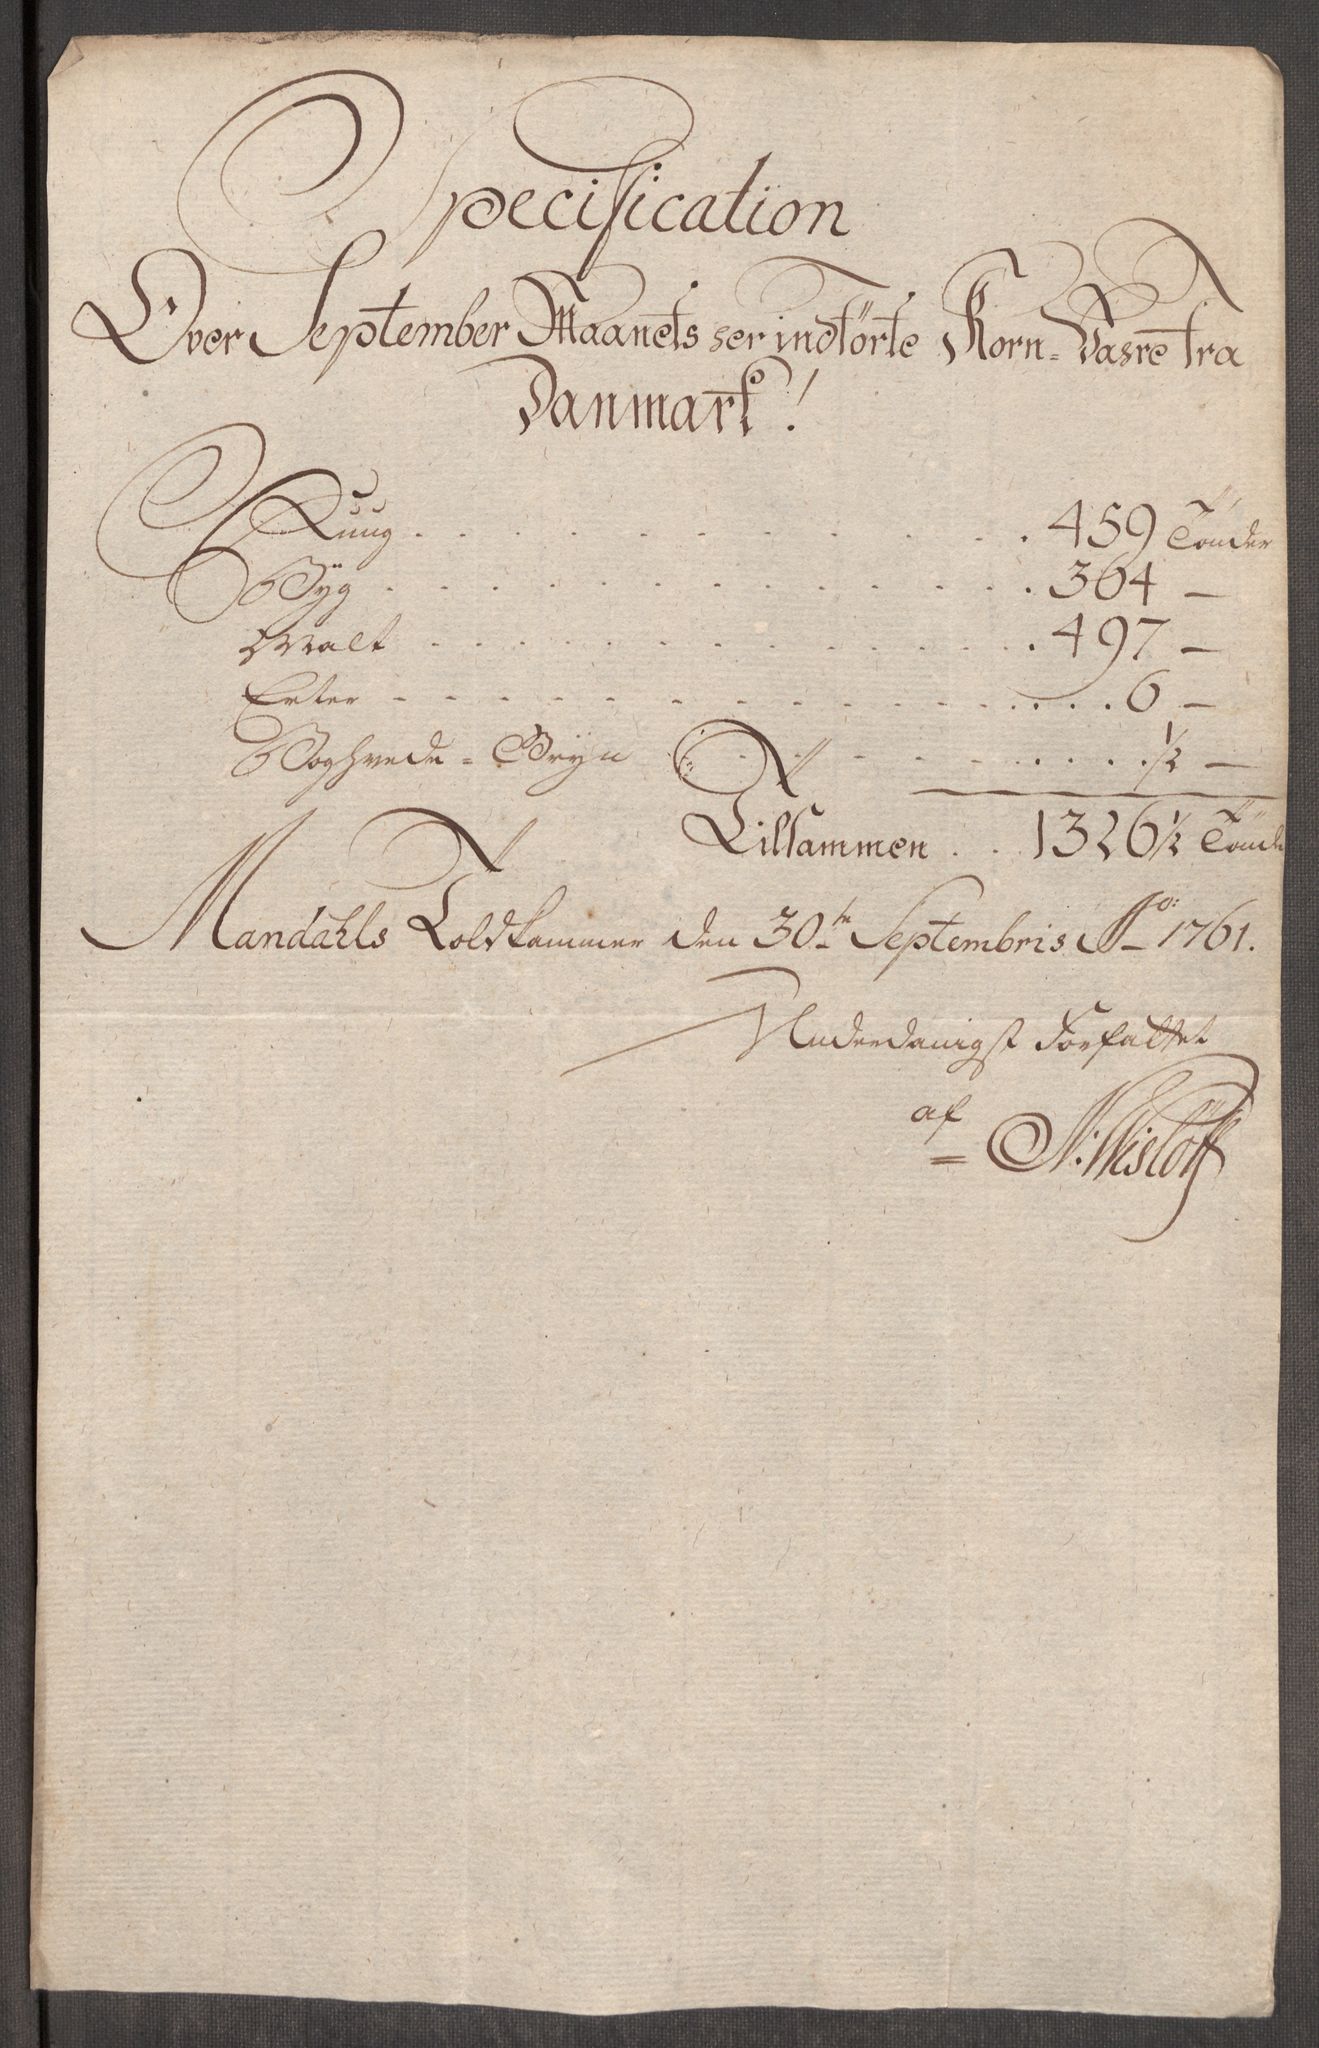 Specification
Over September Maanets her indförte Korn-Vahre fra
Danmark!
Ruug . . . . . . . . . . . . 459 Tönder
Byg . . . . . . . . . . . . 364 —
Malt . . . . . . . . . . . . 497 —
Erter . . . . . . . . . . . . 6 —
Boghvede-Gryn . . . . . . . . ½ —
Tilsammen . . 1326½ Tönde
Mandahls Toldkammer den 30te Septembris Ao: 1761.
Underdanigst Forfattet
af
N: Wislöff